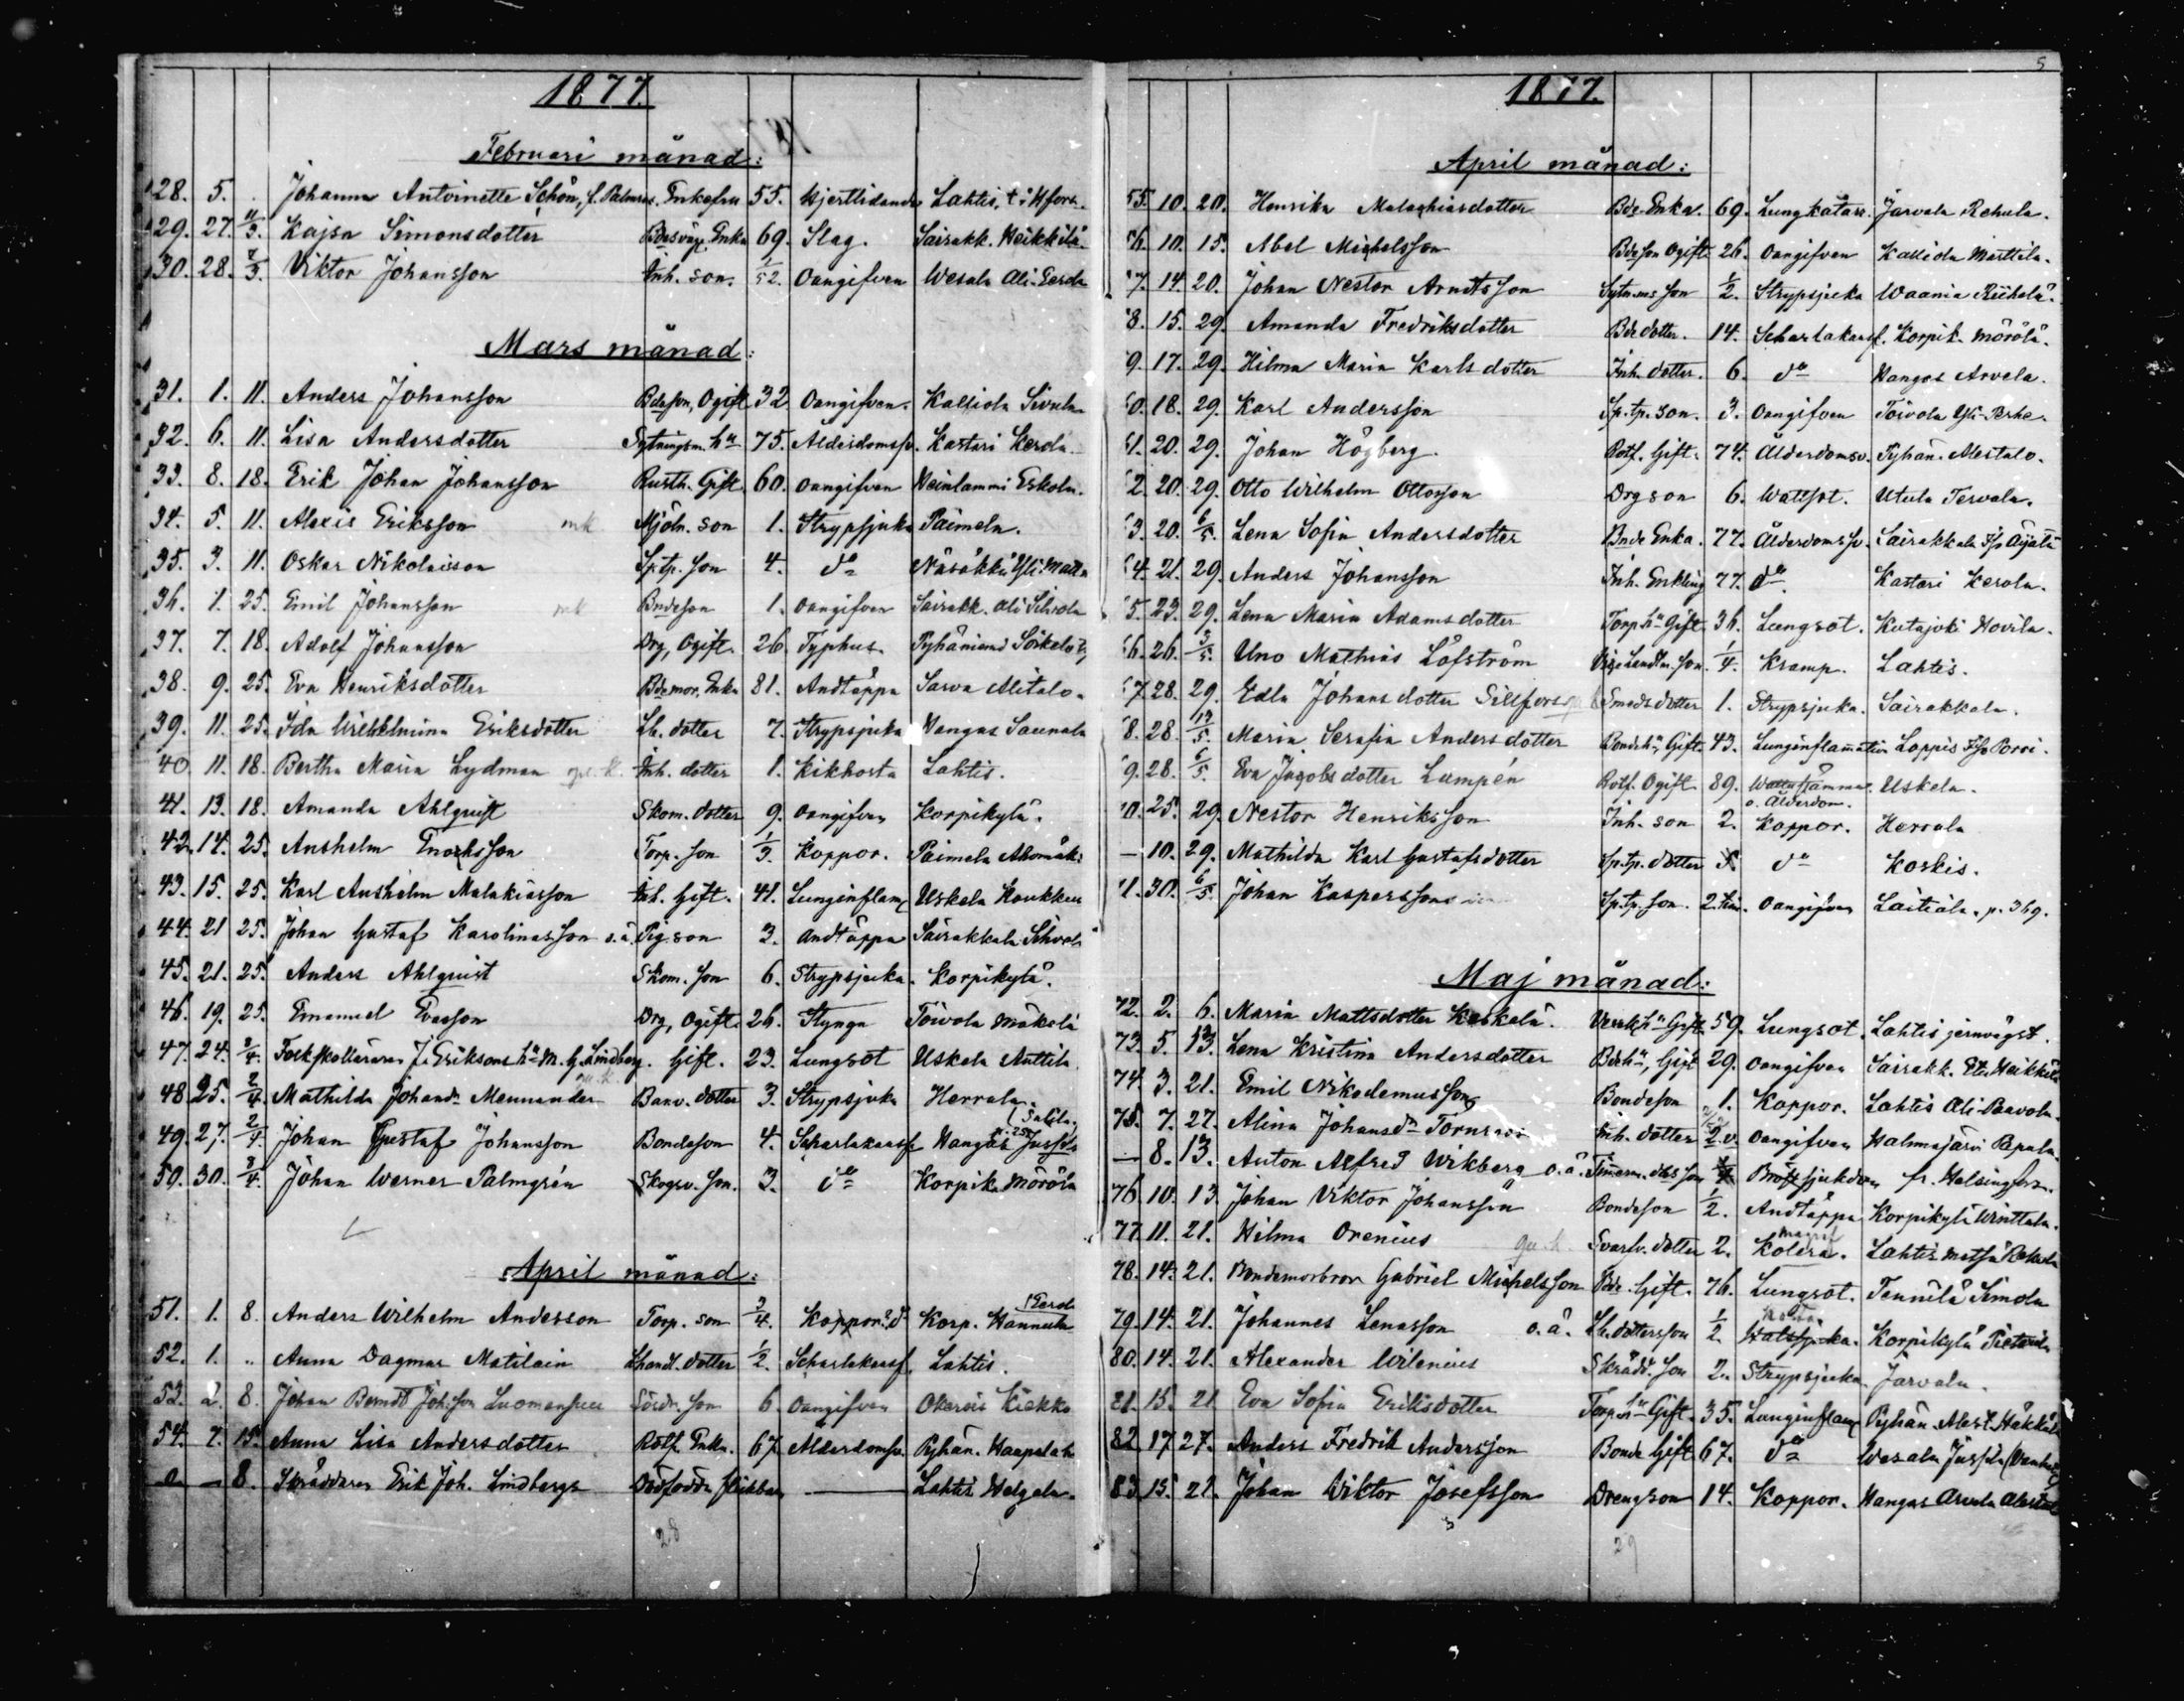 1877.
Februari månad:
28. 5. Johanna Antoinette Schön, f. Palmros. Enkefru 55. Hjertlidande Lahtis, † i Hfors.
29. 27. 11/3. Kajsa Simonsdotter Enka 69. Slag. Sairakk. Heikkilä.
30. 28. 4/3. Viktor Johansson Inh. son. 1/52. Oangifven Wesala Ali-
Mars månad:
31. 1. 11. Anders Johansson Bdeson, Ogift 32 Oangifven. Kalliola Sivula
32. 6. 11. Lisa Andersdotter Sytningsm. hu 75. Ålderdomssv. Kastari Kerola.
33. 8. 18. Erik Johan Johansson Rusth. Gift. 60. Oangifven Heinlammi Eskola.
34. 5. 11. Alexis Eriksson mk Mjöln. son 1. Strypsjuka Paimela.
35. 3. 11. Oskar Nikolaisson Sp.tp. son 4. do Näsäkkä Yli-
36. 1. 25. Emil Johansson mk Bndeson 1. Oangifven Sairakk. Ali Sihvola
37. 7. 18. Adolf Johansson Drg, Ogift. 26. Typhus. Pyhäniemi
38. 9. 25. Eva Henriksdotter Bdemor, Enka 81. Andtäppa Sarva Alitalo.
39. 11. 25. Ida Wilhelmina Eriksdotter Lb. dotter 7. Strypsjuka Hangas Saunala
40 11. 18. Bertha Maria Lydman Inh. dotter 1. Kikhosta Lahtis.
41. 13. 18. Amanda Ahlquist Skom. dotter 9. Oangifven Korpikylä.
42. 14. 25. Anshelm Enocksson Torp. son 1/3. Koppor. Paimela Ahomäki
43. 15. 25. Karl Anshelm Malakiasson Inh. Gift. 41. Lunginflam Uskela Koukku
44. 21 25. Johan Gustaf Karolinasson o.ä. Pig.son 3. Andtäppa Sairakkala Sihvola
45. 21. 25. Anders Ahlquist Skom. son 6. Strypsjuka. Korpikylä.
46. 19. 25. Emanuel Evasson Drg, Ogift. 26. Styngn Toivola Mäkelä
47. 24. 2/4. Folkskollärare J. Eriksons hu M. G. Lindberg. Gift. 23. Lungsot Uskela Anttila
48 25. 2/4. Mathilda Johansdr Mennander Banv. dotter 3. Strypsjuka Herrala.
49. 27. 2/4. Johan Gustaf Johansson Bondeson 4. Scharlakansf Hangas Jussila
50. 30. 3/4. Johan Werner Palmgrén Skogsv. son. 3. do Korpik. Mörölä
April månad:
51. 1. 8. Anders Wilhelm Andersson Torp. son 3/4. Koppor. Korp. Hannula
52. 1. „ Anna Dagmar Matilain Lhandl. dotter 1/2. Scharlakansf. Lahtis.
53. 2. 8. Johan Berndt Johsson Luomansuu son 6. Oangifven Okerois Kiekko
54. 7. 15. Anna Lisa Andersdotter Rotf. Enka. 67. Ålderdomssv. Pyhän. Haapala
– – 8. Skräddaren Erik Joh. Lindbergs Dödfödda flickbarn — Lahtis Helgela.
28
5
1877.
April månad:
55. 10. 20. Henrika Malachiasdotter Bde. Enka. 69. Lungkatarr. Järvela Rehula.
56. 10. 15. Abel Michelsson Bdeson Ogift 26. Oangifven Kalliola Marttila.
57. 14. 20. Johan Nestor Arndtsson Sytn.ms son 1/2. Strypsjuka Waania Riihelä.
58. 15. 29. Amanda Fredriksdotter Bde dotter. 14. Scharlakansf. Korpik. Mörölä.
59. 17. 29. Hilma Maria Karlsdotter Inh. dotter. 6. do Hangas Arvela.
60. 18. 29. Karl Andersson Sp.tp. son. 3. Oangifven Toivola Yli-Perhe.
61. 20. 29. Johan Högberg. Rotf. Gift. 74. Ålderdomsv. Pyhän. Alestalo.
62. 20. 29. Otto Wilhelm Ottosson Drgson 6. Wattsot. Utula Tervala.
63. 20. 6/5. Lena Sofia Andersdotter Bnde Enka. 77. Ålderdomssv. Sairakkala Äijälä
64. 21. 29. Anders Johansson Inh. Enkling 77. do Kastari Kerola.
65. 23. 29. Lena Maria Adamsdotter Torp.hu Gift. 36. Lungsot. Kutajoki Hovila.
66. 26. 3/5. Uno Mathias Löfström Vice Landtm. son. 1/4. Kramp. Lahtis.
67. 28. 29. Edla Johansdotter Sillfors Smeds dotter 1. Strypsjuka. Sairakkala.
68. 28. 13/5. Maria Serafia Andersdotter Bondehu Gift. 43. Lunginflammation Loppis Fso
69. 28. 6/5. Eva Jacobsdotter Lumpén Rotf. Ogift 89. Uskela.
o. Ålderdom.
70. 25. 29. Nestor Henriksson Inh. son 2. Koppor. Herrala
— 10. 29. Mathilda Karl Gustafsdotter Sp.tp. dotter 5. do Koskis.
71. 30. 6/5. Johan Kasperssons Sp.tp. son. 2 tim. Oangifven Laitiala. p. 369.
Maj månad:
72. 2. 6. Maria Mattsdotter Koskelä. Verkh. hu Gift 59. Lungsot. Lahtis jernvägst.
73. 5. 13. Lena Kristina Andersdotter Bdehu, Gift 29. Oangifven Sairakk. Et. Heikkilä
74 3. 21. Emil Nikodemusson Bondeson 1. Koppor. Lahtis Ali-Paavola.
75. 7. 27. Alina Johansdr Törnroos Inh. dotter 2 v. Oangifven Kalmajärvi Papula.
— 8. 13. Anton Alfred Wikberg o.ä. Timerm. dtrs son Bröstsjukdom fr. Helsingfors.
76 10. 13 Johan Viktor Johansson Bondeson 1/2. Andtäppa Korpikylä Winttala.
77. 11. 21. Hilma Orenius Svarfv. dotter 2. Kolera. Lahtis
78. 14. 21. Bondemorbror Gabriel Michelsson Bde. Gift. 76. Lungsot. Tennilä Simola
79. 14. 21. Johannes Lenasson o.ä. Lb. dottersson 1/2. Korpikylä Pietarila
80. 14. 21. Alexander Wilenius Skrädd. son 2. Strypsjuka. Järvela.
81. 15. 21 Eva Sofia Eriksdotter Torp.hu Gift. 35. Lunginflam Pyhän. Alest.
82. 17. 27. Anders Fredrik Andersson Bonde Gift 67. do Wesala Jussila
83. 15. 21. Johan Wiktor Josefsson Drengson 14. Koppor. Hangas Arvela Alastalo
29